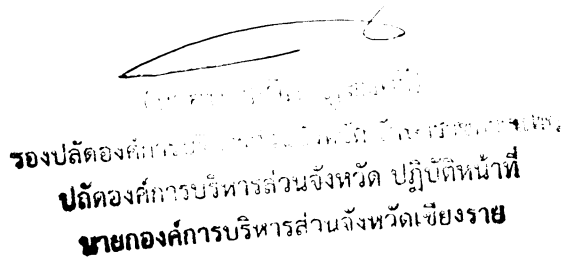 รองปลัดองค์การบริหารส่วนจังหวัด รักษาราชการแทน
ปลัดองค์การบริหารส่วนจังหวัด ปฏิบัติหน้าที่
นายกองค์การบริหารส่วนจังหวัดเชียงราย